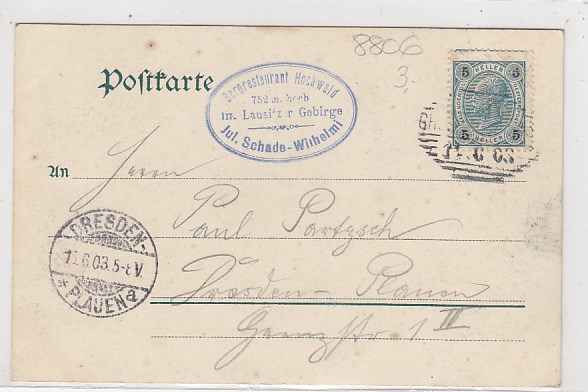 8806
3,-
Postkarte
Bergrestaurant Hochwald
752 m. hoch
im Lausitzer Gebirge
Jul. Schade-Wilhelmi
5 HELLER 5
5 HELLER 5
6 03
An Herrn
Paul Partzsch
Dresden-Plauen
Grenzstr. 1 II
DRESDEN-
6.03.5-6V.
* PLAUEN a